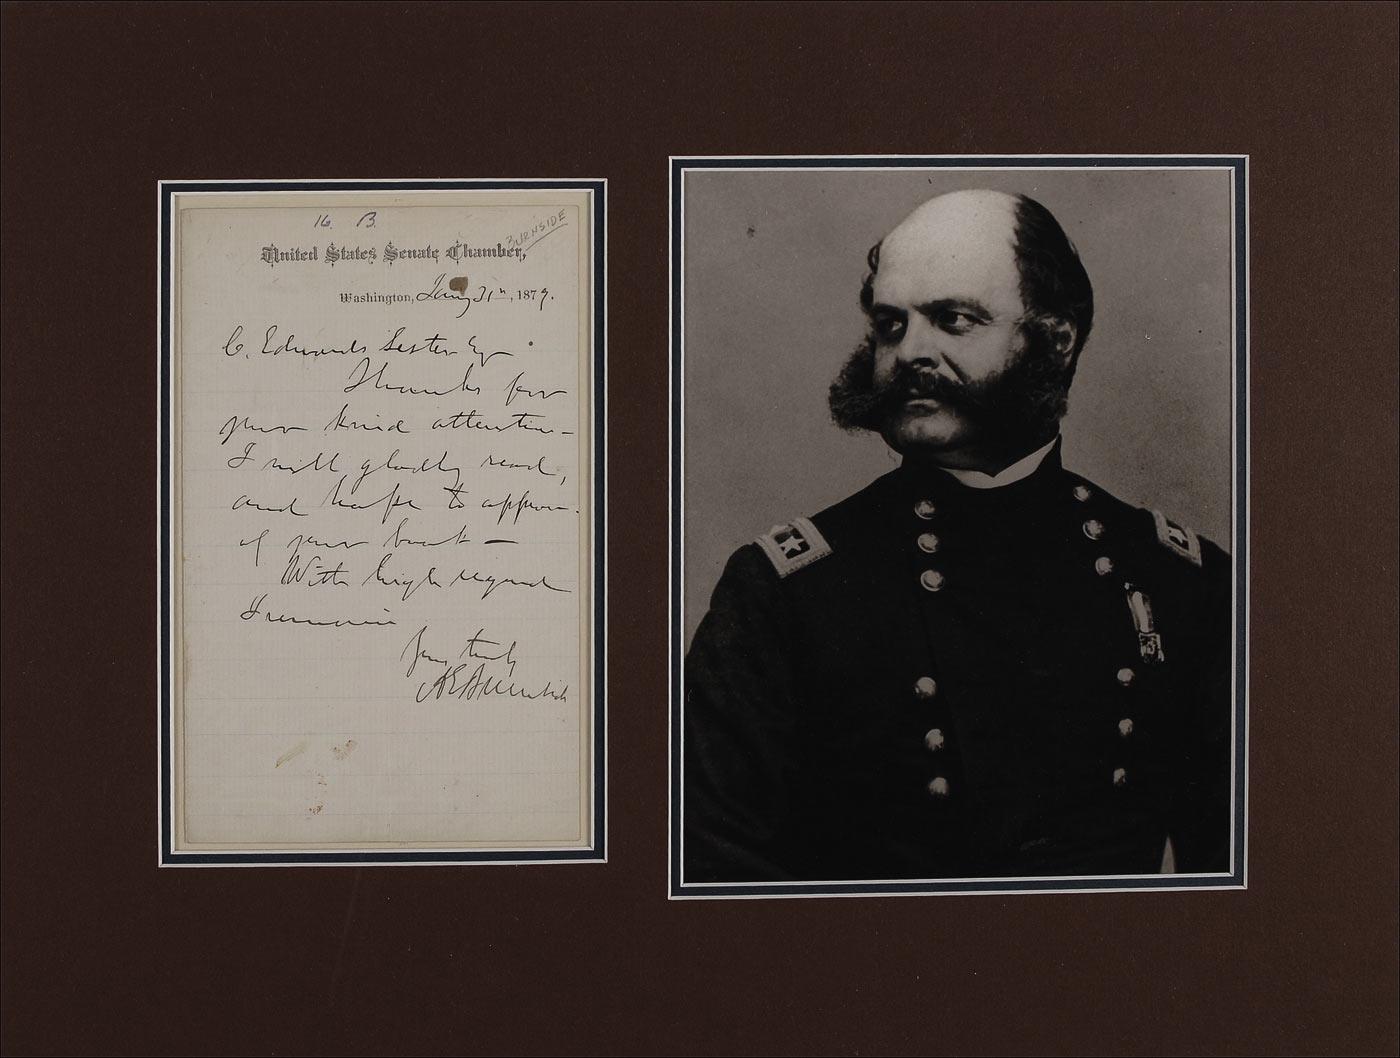 16. B.
BURNSIDE
United States Senate Chamber,
Washington, Jany 31st, 1879.
C. Edwards Lester Esq
Thanks for
your kind attention –
I will gladly read,
and hope to approve
of your book –
With high regard
I remain
Yours truly
A E Burnside